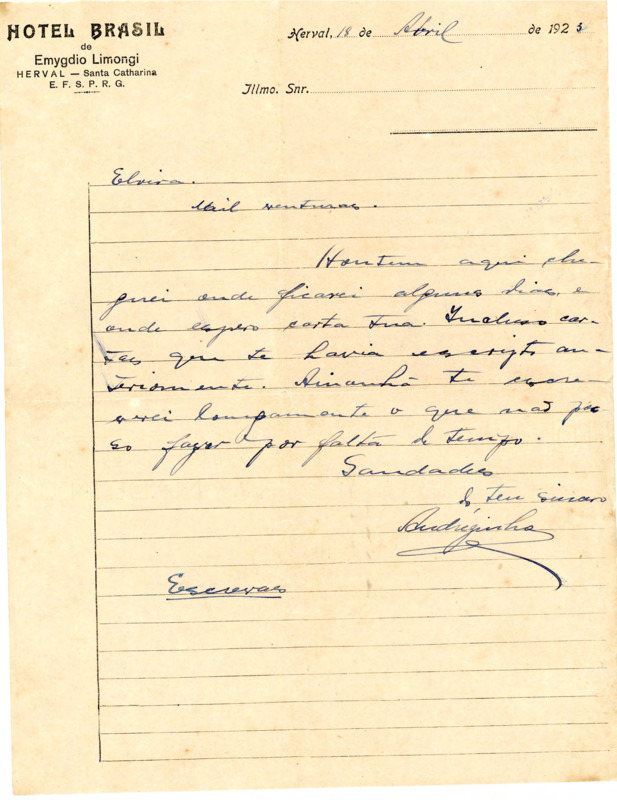 HOTEL BRASIL
de
Emygdio Limongi
HERVAL — Santa Catharina
E. F. S. P. R. G.
Herval, 18 de Abril de 192
Illmo. Snr.
Elvira.
Mil venturas.
Hontem aqui che-
guei onde ficarei alguns dias, e
onde espero carta tua. Incluso car-
tas que te havia escripto an-
teriormente. Amanhã te escre-
verei longamente o que não pos
so fazer por falta de tempo.
Saudades
do teu sincero
Andrézinho
Escrevas